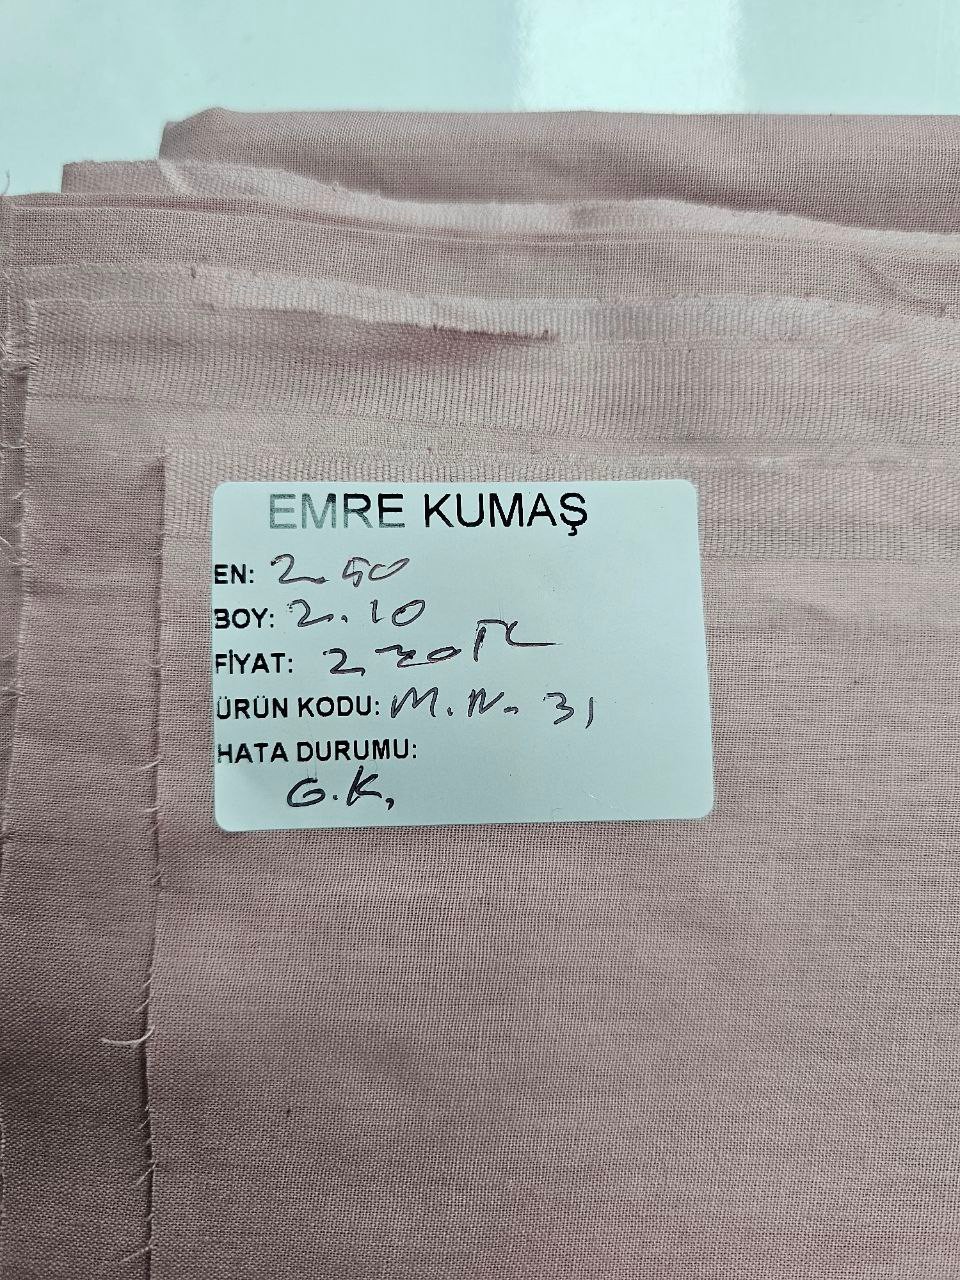 EMRE KUMAŞ
EN: 2.50
BOY: 2.10
FİYAT: TL
ÜRÜN KODU: M.N. 31
HATA DURUMU:
G.K.